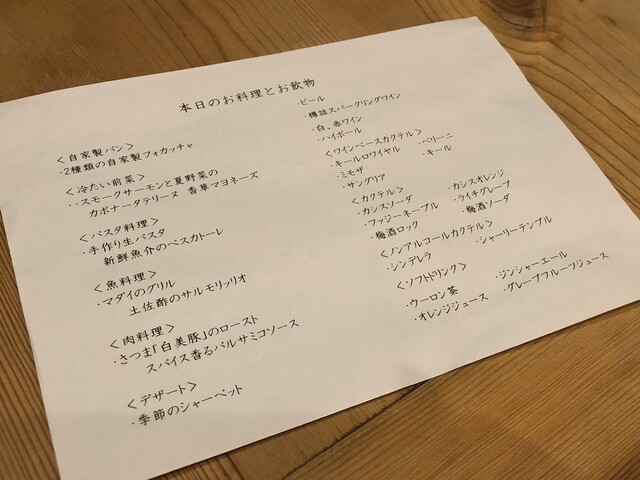 本日のお料理とお飲物
＜自家製パン＞
・2種類の自家製フォカッチャ
＜冷たい前菜＞
・・スモークサーモンと夏野菜の
カポナータテリーヌ　香草マヨネーズ
＜パスタ料理＞
・手作り生パスタ
新鮮魚介のペスカトーレ
＜魚料理＞
・マダイのグリル
土佐酢のサルモリッリオ
＜肉料理＞
・さつま「白美豚」のロースト
スパイス香るバルサミコソース
＜デザート＞
・季節のシャーベット
・ビール
・樽詰スパークリングワイン
・白、赤ワイン
・ハイボール
＜ワインベースカクテル＞
・キールロワイヤル　・ベリーニ
・ミモザ　・キール
・サングリア
＜カクテル＞
・カシスソーダ　・カシスオレンジ
・ファジーネーブル　・ライチグレープ
・梅酒ロック　・梅酒ソーダ
＜ノンアルコールカクテル＞
・シンデレラ　・シャーリーテンプル
＜ソフトドリンク＞
・ウーロン茶　・ジンシャーエール
・オレンジジュース　・グレープフルーツジュース